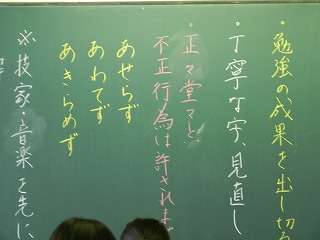 ・勉強の成果を出し切る
・丁寧な字、見直し
・正々堂々と、
不正行為は許されま
あせらず
あわてず
あきらめず
※技家・音楽を先に、